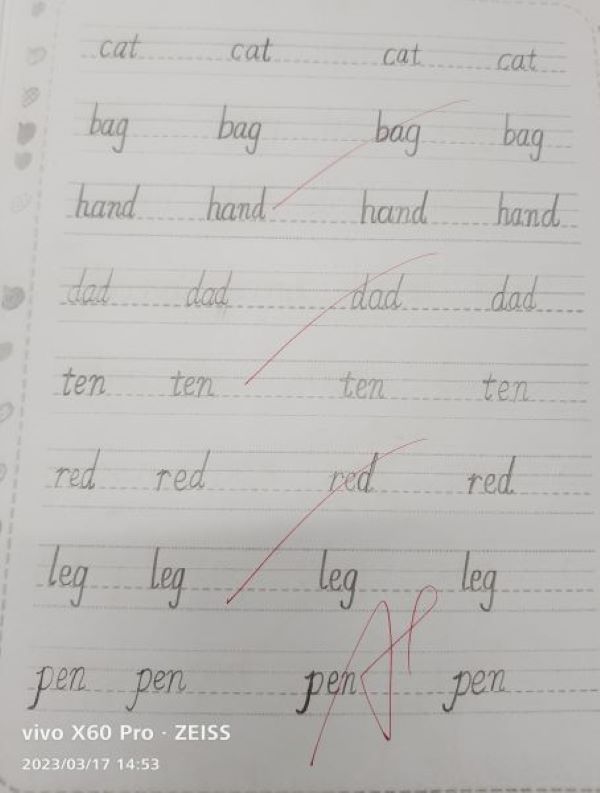 cat cat cat cat
bag bag bag bag
hand hand hand hand
dad dad dad dad
ten ten ten ten
red red red red
leg leg leg leg
pen pen pen pen
vivo X60 Pro · ZEISS
2023/03/17 14:53